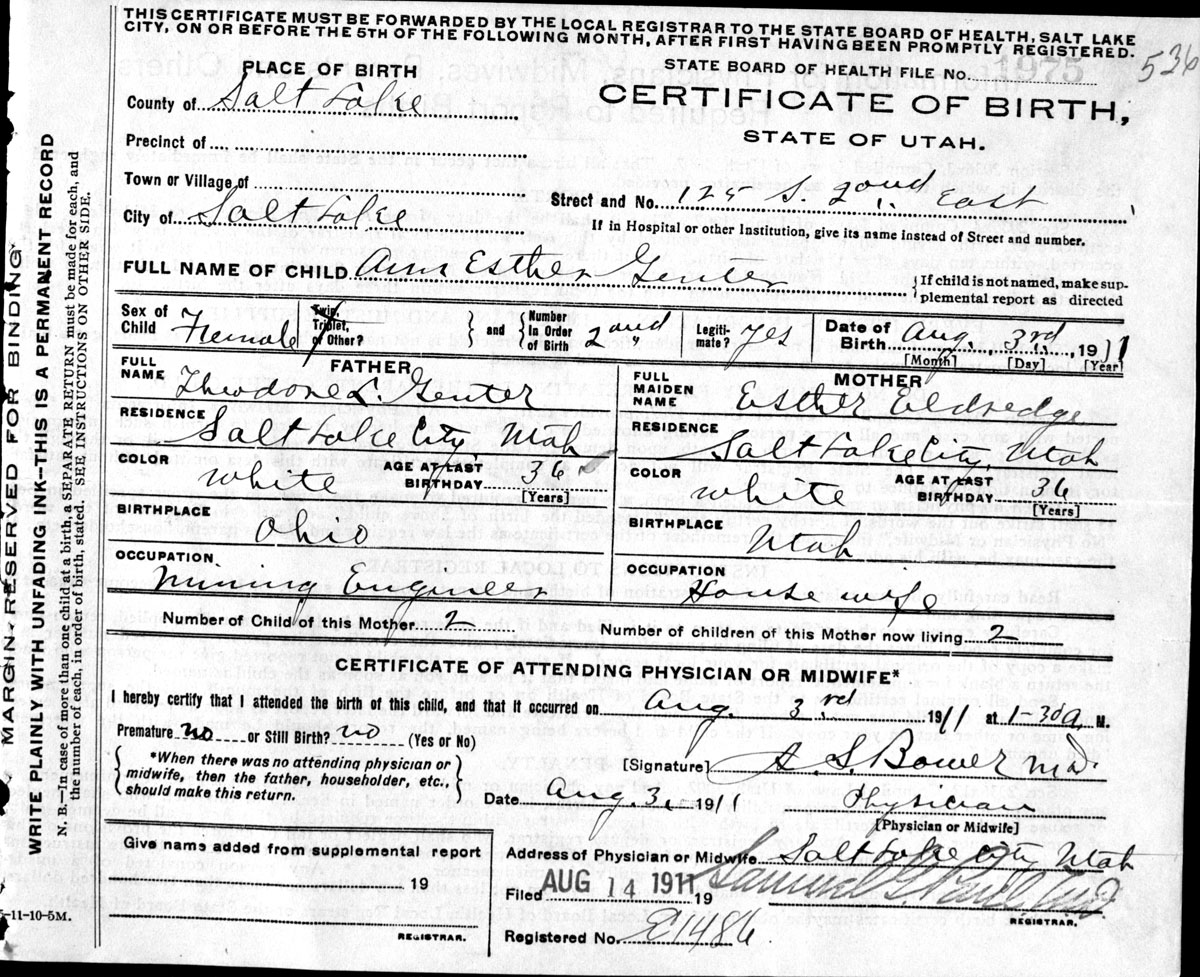 THIS CERTIFICATE MUST BE FORWARDED BY THE LOCAL REGISTRAR TO THE STATE BOARD OF HEALTH, SALT LAKE
CITY, ON OR BEFORE THE 5TH OF THE FOLLOWING MONTH, AFTER FIRST HAVING BEEN PROMPTLY REGISTERED.
536
PLACE OF BIRTH
STATE BOARD OF HEALTH FILE No. 1975
County of Salt Lake
CERTIFICATE OF BIRTH,
STATE OF UTAH.
Precinct of
Town or Village of
Street and No. 125 S. 2ond East
City of Salt Lake
If in Hospital or other Institution, give its name instead of Street and number.
FULL NAME OF CHILD Ann Esther Genter
{ If child is not named, make sup-
plemental report as directed
Sex of Child Female
Twin, Triplet, or Other?
} and {
Number In Order of Birth 2ond
Legiti-mate? Yes
Date of Birth Aug. 3rd, 1911
[Month] [Day] [Year]
FATHER
FULL NAME Theodore L. Genter
RESIDENCE Salt Lake City, Utah
COLOR white AGE AT LAST BIRTHDAY 36
[Years]
BIRTHPLACE Ohio
OCCUPATION Mining Engineer
MOTHER
FULL MAIDEN NAME Esther Eldredge
RESIDENCE Salt Lake City, Utah
COLOR white AGE AT LAST BIRTHDAY 36
[Years]
BIRTHPLACE Utah
OCCUPATION House wife
Number of Child of this Mother 2
Number of children of this Mother now living 2
CERTIFICATE OF ATTENDING PHYSICIAN OR MIDWIFE*
I hereby certify that I attended the birth of this child, and that it occurred on Aug. 3rd 1911 at 1-30a M.
Premature no or Still Birth? no (Yes or No)
{ *When there was no attending physician or
midwife, then the father, householder, etc.,
should make this return. }
[Signature] A. S. Bower MD.
Date Aug 3, 1911
Physician
[Physician or Midwife]
Give name added from supplemental report
19
REGISTRAR.
Address of Physician or Midwife Salt Lake City Utah
Filed AUG 14 1911 19
REGISTRAR.
Registered No. 1486
MARGIN RESERVED FOR BINDING
WRITE PLAINLY WITH UNFADING INK-THIS IS A PERMANENT RECORD
N. B.—In case of more than one child at a birth, a SEPARATE RETURN must be made for each, and
the number of each, in order of birth, stated. SEE INSTRUCTIONS ON OTHER SIDE.
-11-10-5M.